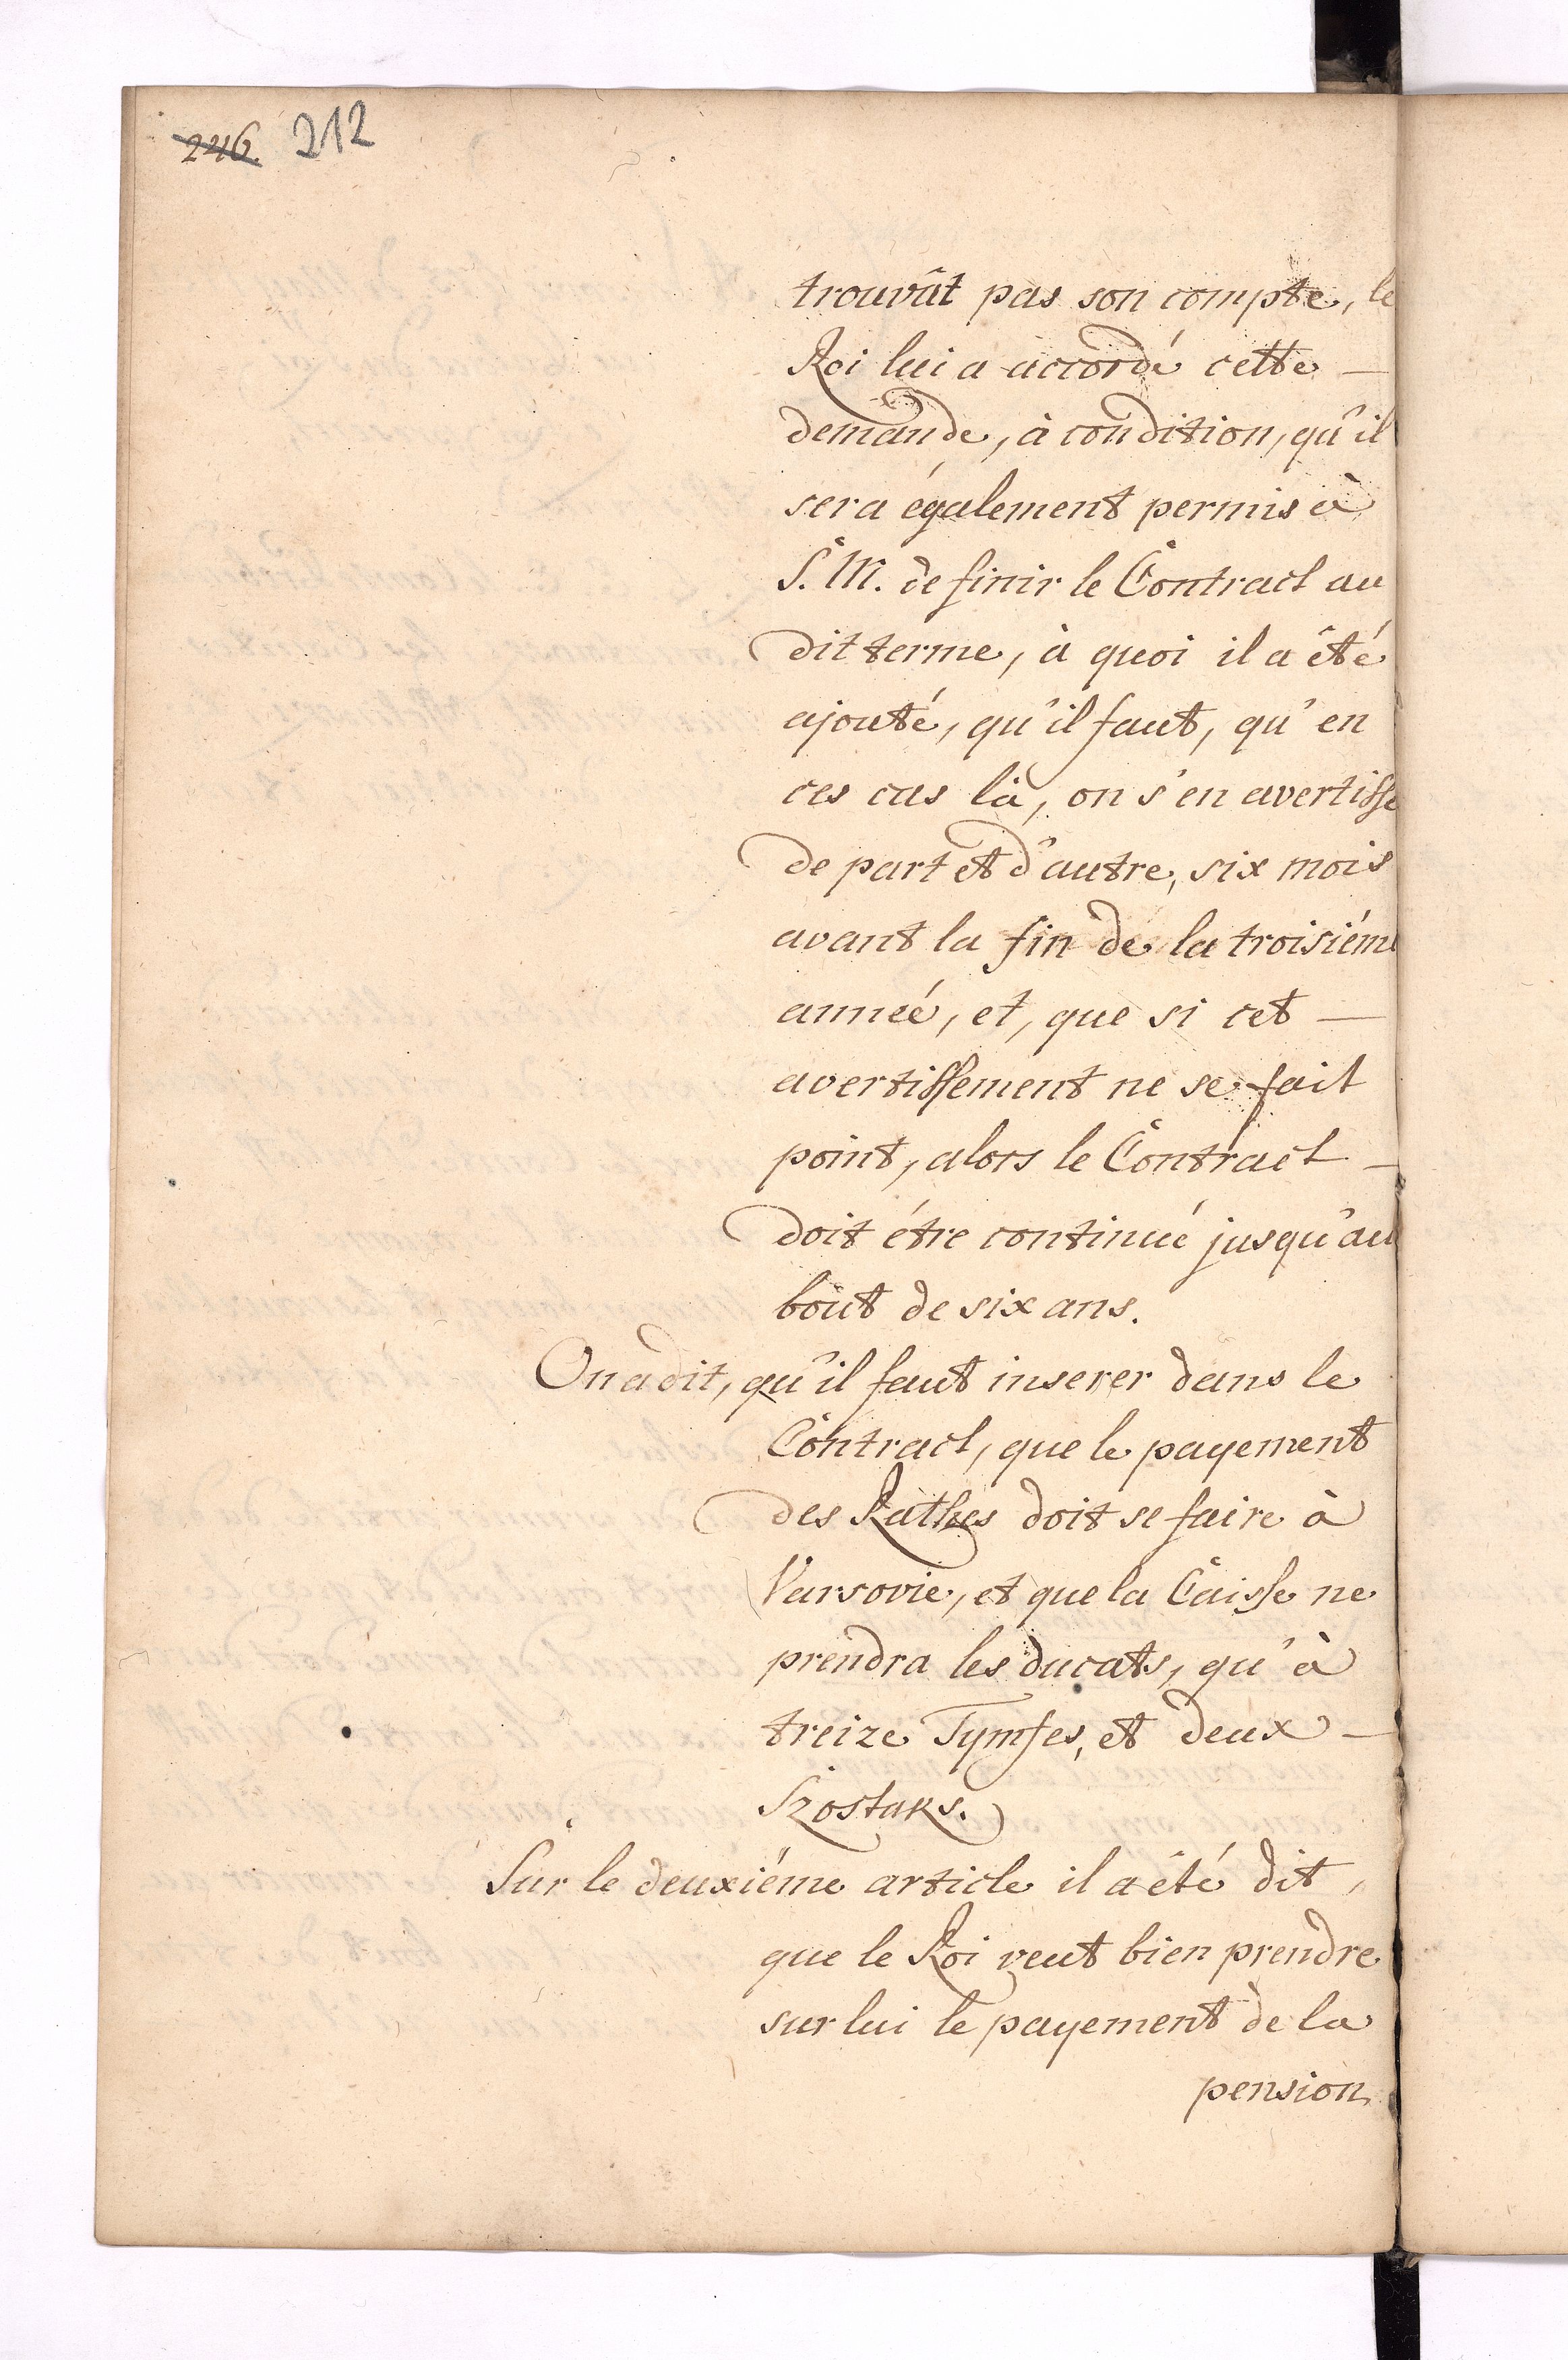 246. 212
trouvât pas son compte, le
Roi lui a accordé cette —
demande, à condition, qu'il
sera également permis à
S. M. de finir le Contract au
dit terme, à quoi il a été
ajouté, qu'il faut, qu'en
ces cas là, on s'en avertisse
de part et d'autre, six mois
avant la fin de la troisiéme
anneé, et, que si cet —
avertissement ne se fait
point, alors le Contract —
doit étre continué jusqu'au
bout de six ans.
On a dit, qu'il faut inserer dans le
Contract, que le payement
des Rathes doit se faire à
Varsovie, et que la Caisse ne
prendra les ducats, qu'à
treize Tymfes, et deux —
Szostaks.
Sur le deuxiéme article il a été dit,
que le Roi veut bien prendre
sur lui le payement de la
pension